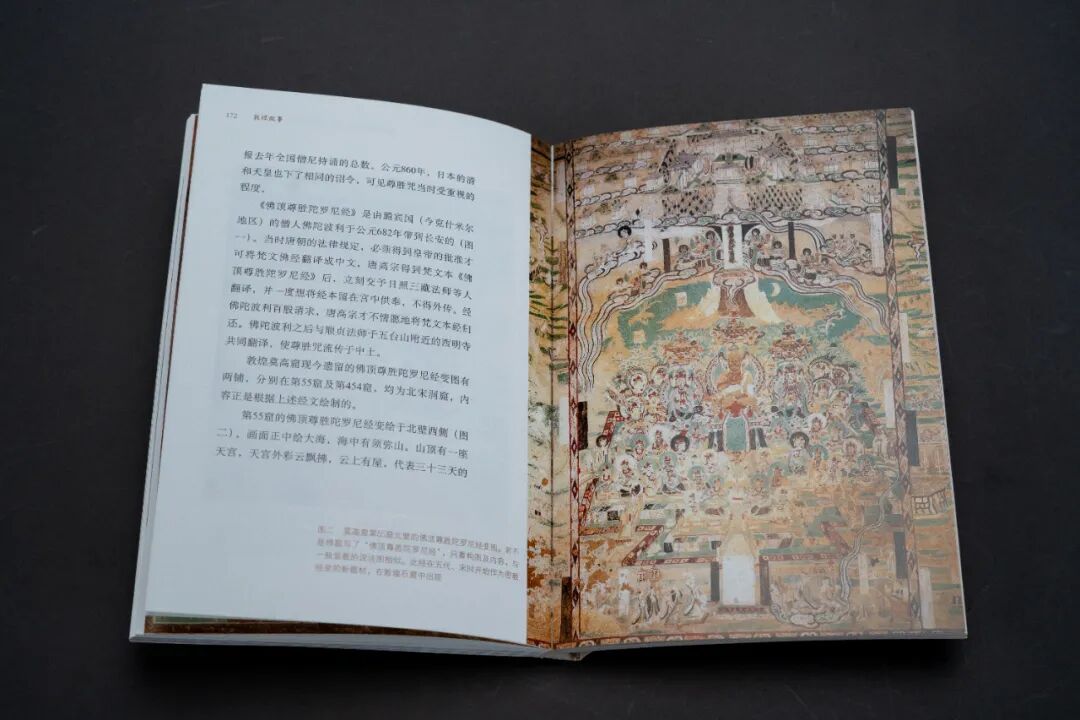 172 敦煌故事
报去年全国僧尼持诵的总数。公元860年，日本的清
和天皇也下了相同的诏令，可见尊胜咒当时受重视的
程度。
《佛顶尊胜陀罗尼经》是由罽宾国（今克什米尔
地区）的僧人佛陀波利于公元682年带到长安的（图
一）。当时唐朝的法律规定，必须得到皇帝的批准才
可将梵文佛经翻译成中文，唐高宗得到梵文本《佛
顶尊胜陀罗尼经》后，立刻交予日照三藏法师等人
翻译，并一度想将经本留在宫中供奉，不得外传。经
佛陀波利百般请求，唐高宗才不情愿地将梵文本经归
还。佛陀波利之后与顺贞法师于五台山附近的西明寺
共同翻译，使尊胜咒流传于中土。
敦煌莫高窟现今遗留的佛顶尊胜陀罗尼经变图有
两铺，分别在第55窟及第454窟，均为北宋洞窟，内
容正是根据上述经文绘制的。
第55窟的佛顶尊胜陀罗尼经变绘于北壁西侧（图
二），画面正中绘大海，海中有须弥山。山顶有一座
天宫，天宫外彩云飘拂，云上有屋，代表三十三天的
图二 莫高窟第55窟北壁的佛顶尊胜陀罗尼经变图。若不
是榜题写了“佛顶尊胜陀罗尼经”，只看构图及内容，与
一般的说法图相似。此经在五代、宋时开始作为密教
经变的新题材，在敦煌石窟中出现